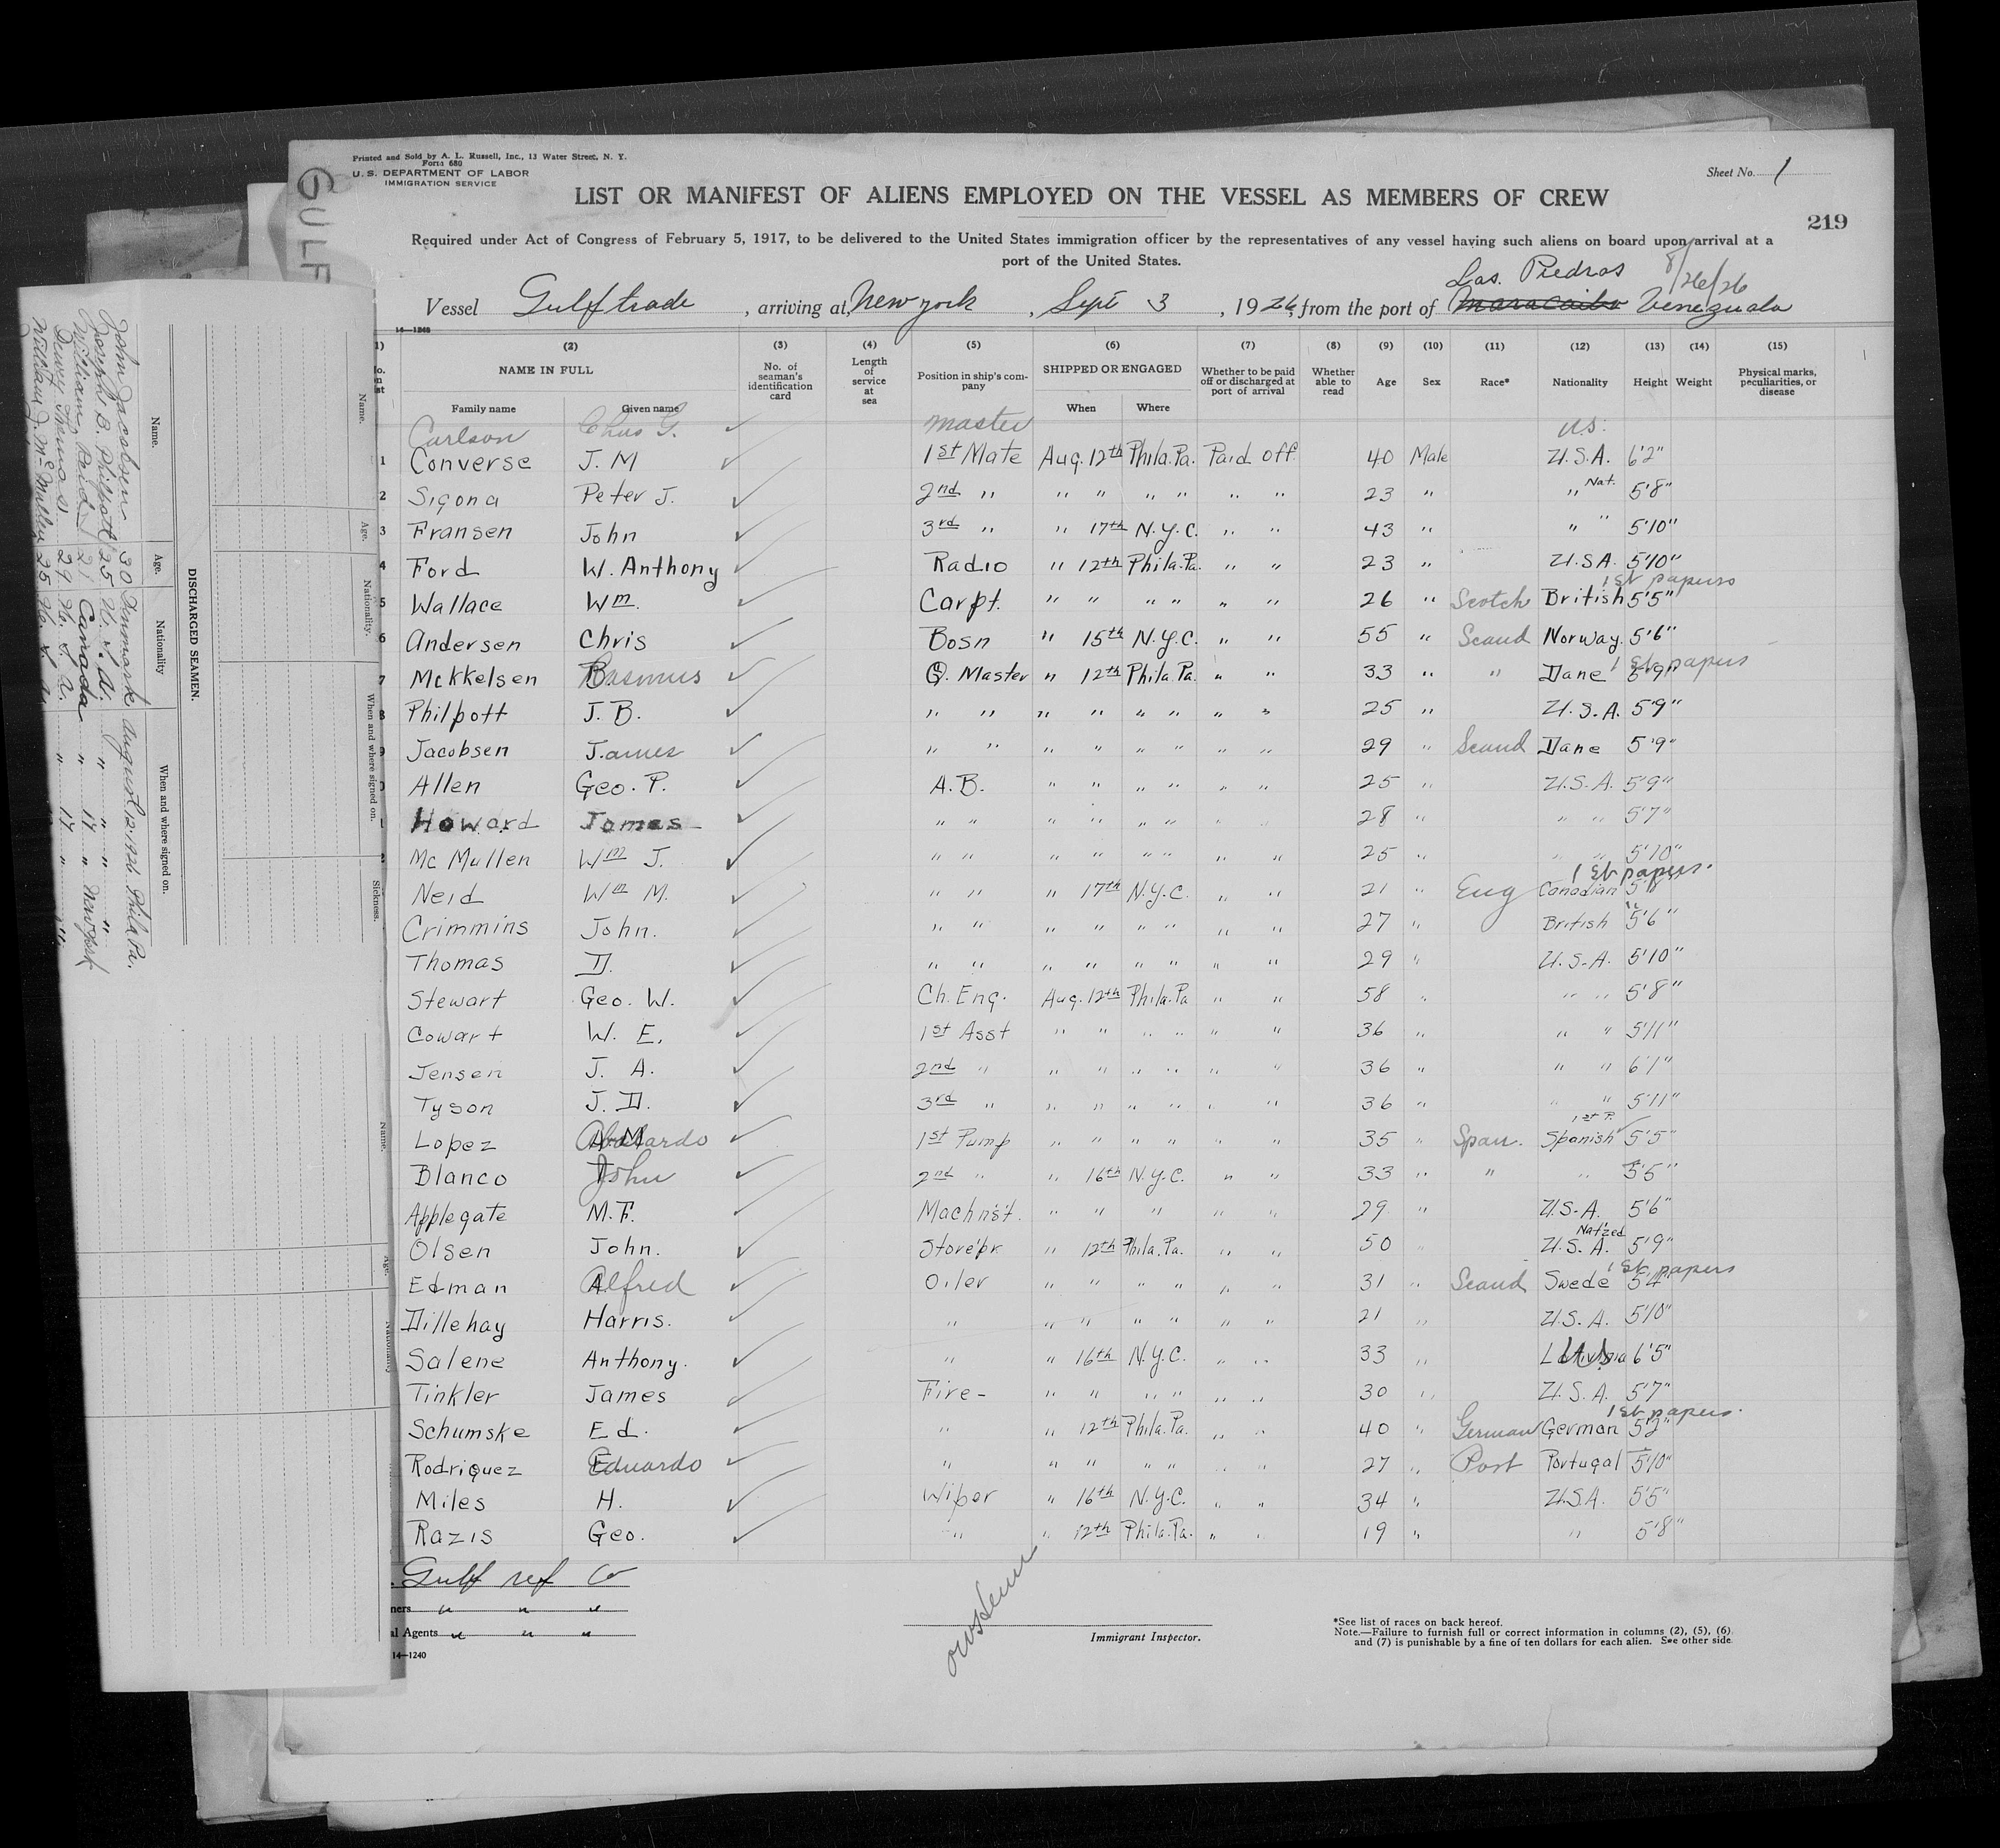 Printed and Sold by A. L. Russell, Inc., 13 Water Street, N. Y.
Form 680
U. S. DEPARTMENT OF LABOR
IMMIGRATION SERVICE
Sheet No. 1
LIST OR MANIFEST OF ALIENS EMPLOYED ON THE VESSEL AS MEMBERS OF CREW
219
Required under Act of Congress of February 5, 1917, to be delivered to the United States immigration officer by the representatives of any vessel having such aliens on board upon arrival at a
port of the United States.
Las Piedras 8/26/26
Vessel Gulftrade, arriving at New york, Sept 3, 1926, from the port of Maracaibo Venezuala
14—1240
(2) (3) (4) (5) (6) (7) (8) (9) (10) (11) (12) (13) (14) (15)
NAME IN FULL No. of seaman's identification card Length of service at sea Position in ship's company SHIPPED OR ENGAGED Whether to be paid off or discharged at port of arrival Whether able to read Age Sex Race* Nationality Height Weight Physical marks, peculiarities, or disease
Family name Given name When Where
Carlson Chas G. Master U.S.
1 Converse J. M 1st Mate Aug. 12th Phila. Pa. Paid off. 40 Male U.S.A. 6'2"
2 Sigona Peter J. 2nd " " " " " " " 23 " " Nat. 5'8"
3 Fransen John 3rd " " 17th N.Y.C. " " 43 " " " 5'10"
4 Ford W. Anthony Radio " 12th Phila. Pa. " " 23 " U.S.A. 5'10"
5 Wallace Wm. Carpt. " " " " " " 26 " Scotch British 5'5" 1st papers
6 Andersen Chris Bosn " 15th N.Y.C. " " 55 " Scand Norway. 5'6"
7 Mckkelsen Rasmus Q. Master " 12th Phila. Pa. " " 33 " " Dane 5'9" 1st papers
8 Philpott J. B. " " " " " " " " 25 " U.S.A. 5'9"
9 Jacobsen James " " " " " " " " 29 " Scand Dane 5'9"
Allen Geo. P. A.B. " " " " " " 25 " U.S.A. 5'9"
Howard James " " " " " " " " 28 " " " 5'7"
Mc Mullen Wm J. " " " " " " " " 25 " " " 5'10"
Neid Wm M. " " " 17th N.Y.C. " " 21 " Eng Canadian 5'8" 1st papers.
Crimmins John. " " " " " " " " 27 " British 5'6"
Thomas D. " " " " " " " " 29 " U.S.A. 5'10"
Stewart Geo. W. Ch. Eng. Aug. 12th Phila. Pa " " 58 " " " 5'8"
Cowart W. E. 1st Asst " " " " " " 36 " " " 5'11"
Jensen J. A. 2nd " " " " " " " 36 " " " 6'1"
Tyson J. D. 3rd " " " " " " " 36 " " " 5'11"
Lopez Abelardo 1st Pump " " " " " " 35 " Span. Spanish 1st P. 5'5"
Blanco John 2nd " " 16th N.Y.C. " " 33 " " " 5'5"
Applegate M. F. Machn'st. " " " " " 29 " U.S.A. 5'6"
Olsen John. Store'pr " 12th Phila. Pa. " " 50 " Nat'zed U.S.A. 5'9"
Edman Alfred Oiler " " " " " " 31 " Scand Swede 5'4" 1st papers
Dillehay Harris. " " " " " " " 21 " U.S.A. 5'10"
Salene Anthony. " " 16th N.Y.C. " " 33 " US 6'5"
Tinkler James Fire- " " " " " " 30 " U.S.A. 5'7"
Schumske Ed. " " 12th Phila. Pa. " " 40 " German German 5'2" 1st papers.
Rodriquez Eduardo " " " " " " " 27 " Port Portugal 5'10"
Miles H. Wiper " 16th N.Y.C. " " 34 " U.S.A. 5'5"
Razis Geo. " " 12th Phila. Pa. " " 19 " " 5'8"
Gulf ref Co
ners " " "
al Agents " " "
14—1240
Immigrant Inspector.
*See list of races on back hereof.
Note.—Failure to furnish full or correct information in columns (2), (5), (6),
and (7) is punishable by a fine of ten dollars for each alien. See other side.
GULF
DISCHARGED SEAMEN.
Name. Age. Nationality When and where signed on.
John Jacobsen 30 Denmark August 12. 1926 Phila Pa.
Joseph B. Philpott 25 U.S.A. " " "
William Reid 21 Canada " 17 " Newyork
Dewey Thomas. 29 U.S.A. " 17 " "
William J. McMullen 25 U.S.A.
Name. Age. Nationality. When and where signed on. Sickness.
Name. Age. Nationality